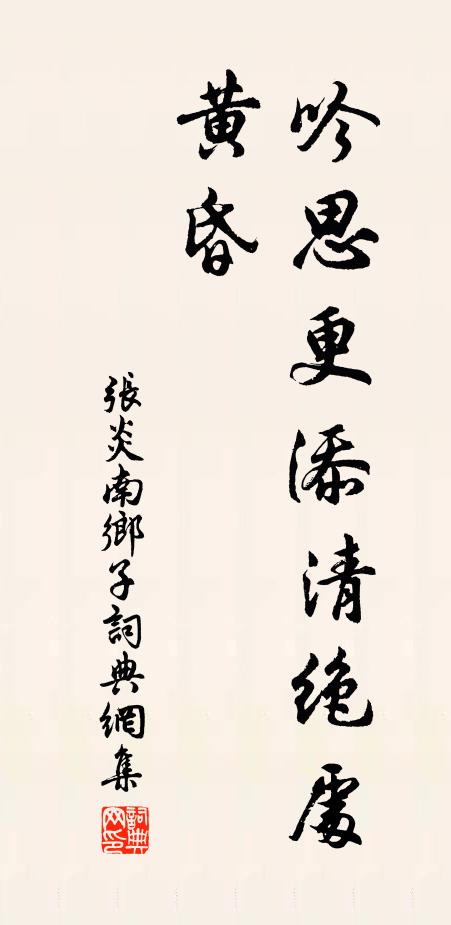 吟思更添清絶處
黄昏
張炎南鄉子詞典網集
詞典网印